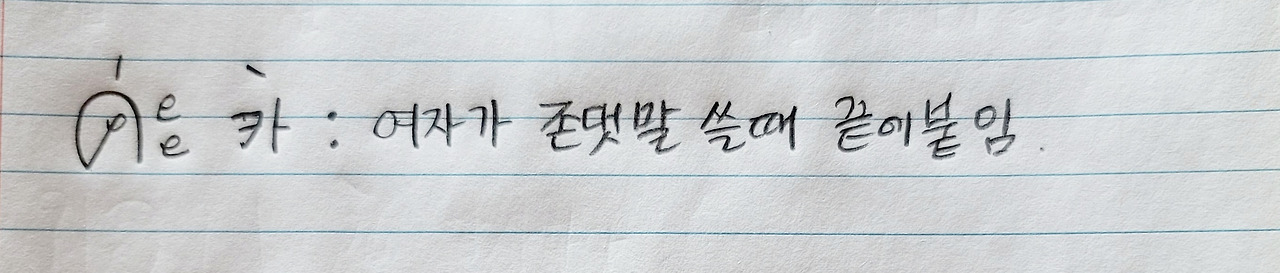 ค่ะ 카 : 여자가 존댓말 쓸때 끝에붙임.